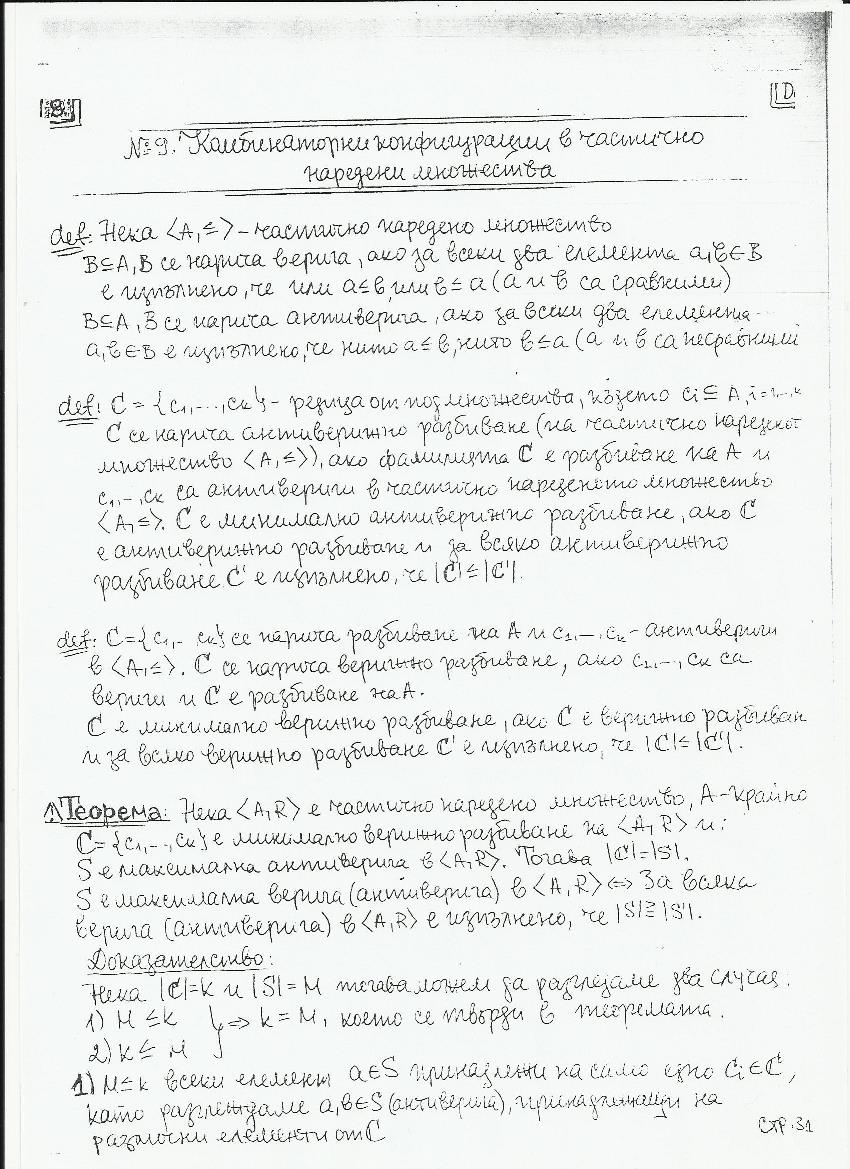 8.
D
№9. Комбинаторни конфигурации в частично
наредени множества
def: Нека <A,≤> - частично наредено множество
B⊆A, B се нарича верига, ако за всеки два елемента a,b∈B
е изпълнено, че или a≤b, или b≤a (a и b са сравними)
B⊆A, B се нарича антиверига, ако за всеки два елемента
a,b∈B е изпълнено, че нито a≤b, нито b≤a (a и b са несравними
def: C = {c1,...,ck} - редица от подмножества, където ci⊆A, i=1...k
C се нарича антиверижно разбиване (на частично нареденот
множество <A,≤>), ако фамилията C е разбиване на A и
c1,..,ck са антивериги в частично нареденото множество
<A,≤>. C е минимално антиверижно разбиване, ако C
е антиверижно разбиване и за всяко антиверижно
разбиване C' е изпълнено, че |C|≤|C'|.
def: C={c1,.. ck} се нарича разбиване на A и c1,...,ck - антивериги
в <A,≤>. C се нарича верижно разбиване, ако c1,..,ck са
вериги и C е разбиване на A.
C е минимално верижно разбиване, ако C е верижно разбиван
и за всяко верижно разбиване C' е изпълнено, че |C|≤|C'|.
1) Теорема: Нека <A,R> е частично наредено множество, A-крайно
C={c1,..,ck} е минимално верижно разбиване на <A,R> и:
S е максимална антиверига в <A,R>. Тогава |C|=|S|.
S е максимална верига (антиверига) в <A,R> ⇔ За всяка
верига (антиверига) в <A,R> е изпълнено, че |S|≥|S'|.
Доказателство:
Нека |C|=k и |S|=M тогава можем да разгледаме два случая:
1) M≤k } ⇒ k=M, което се твърди в теоремата.
2) k≤M
1) M≤k всеки елемент a∈S принадлежи на само едно Ci∈C,
като разглеждаме a,b∈S (антиверига), принадлежащи на
различни елементи от C
СТР. 31